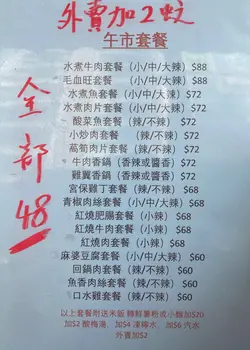 外賣加2蚊
午市套餐
全部48
水煮牛肉套餐 (小/中/大辣) $88
毛血旺套餐 (小/中/大辣) $88
水煮魚套餐 (小/中/大辣) $72
水煮肉片套餐 (小/中/大辣) $72
酸菜魚套餐 (辣/不辣) $72
小炒肉套餐 (辣/不辣) $72
萵筍肉片套餐 (辣/不辣) $72
牛肉香鍋 (香辣或醬香) $72
雞翼香鍋 (香辣或醬香) $72
宮保雞丁套餐 (辣/不辣) $68
青椒肉絲套餐 (小辣/大辣) $68
紅燒肥腸套餐 (小辣) $68
紅燒牛肉套餐 (小辣) $68
紅燒肉套餐 (小辣) $68
麻婆豆腐套餐 (小辣/大辣) $60
回鍋肉套餐 (辣/不辣) $60
魚香肉絲套餐 (辣/不辣) $60
口水雞套餐 (辣/不辣) $60
以上套餐附送米飯 轉鮮薯粉或小麵加$20
加$2 酸梅湯, 加$4 凍檸水 加$6 汽水
外賣加$2